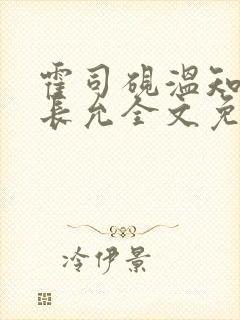 霍司砚温知
长允全文免
冷伊景